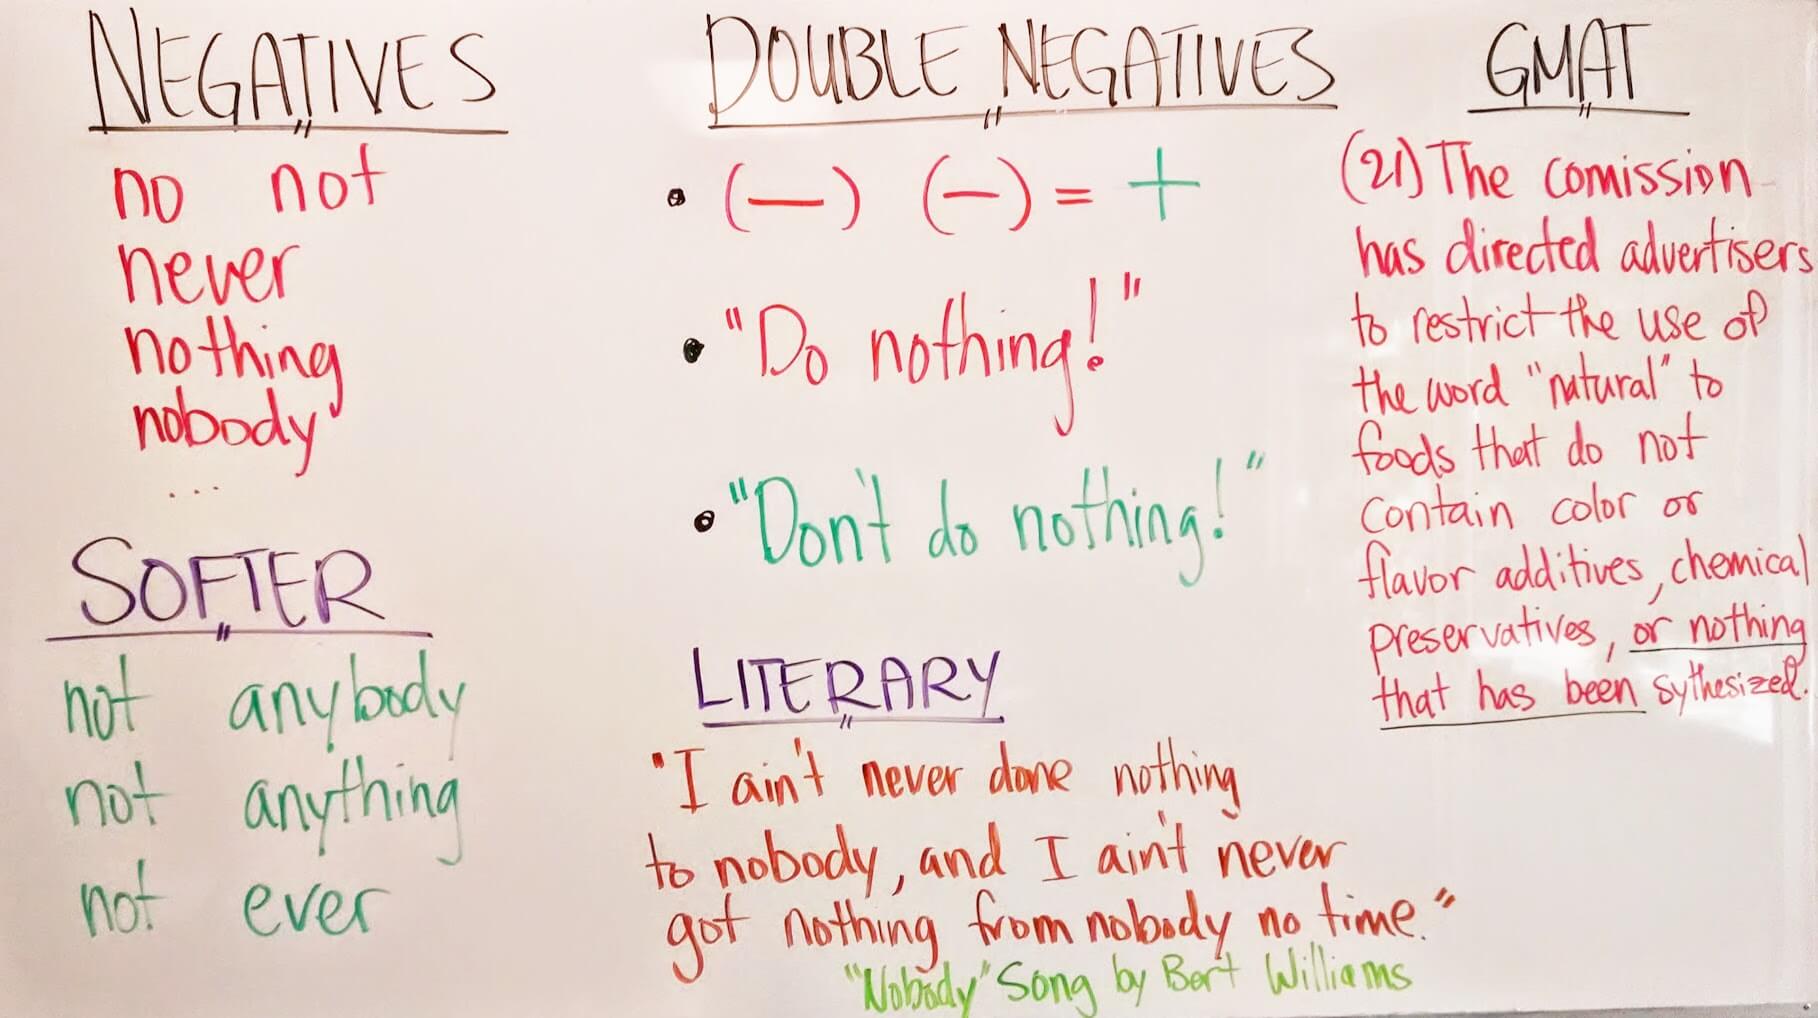 NEGATIVES
no not
never
nothing
nobody
...
SOFTER
not anybody
not anything
not ever
DOUBLE NEGATIVES
• (—) (—) = +
• "Do nothing!"
• "Don't do nothing!"
LITERARY
"I ain't never done nothing
to nobody, and I ain't never
got nothing from nobody no time."
"Nobody" Song by Bert Williams
GMAT
(21) The comission
has directed advertisers
to restrict the use of
the word "natural" to
foods that do not
contain color or
flavor additives, chemical
preservatives, or nothing
that has been sythesized.